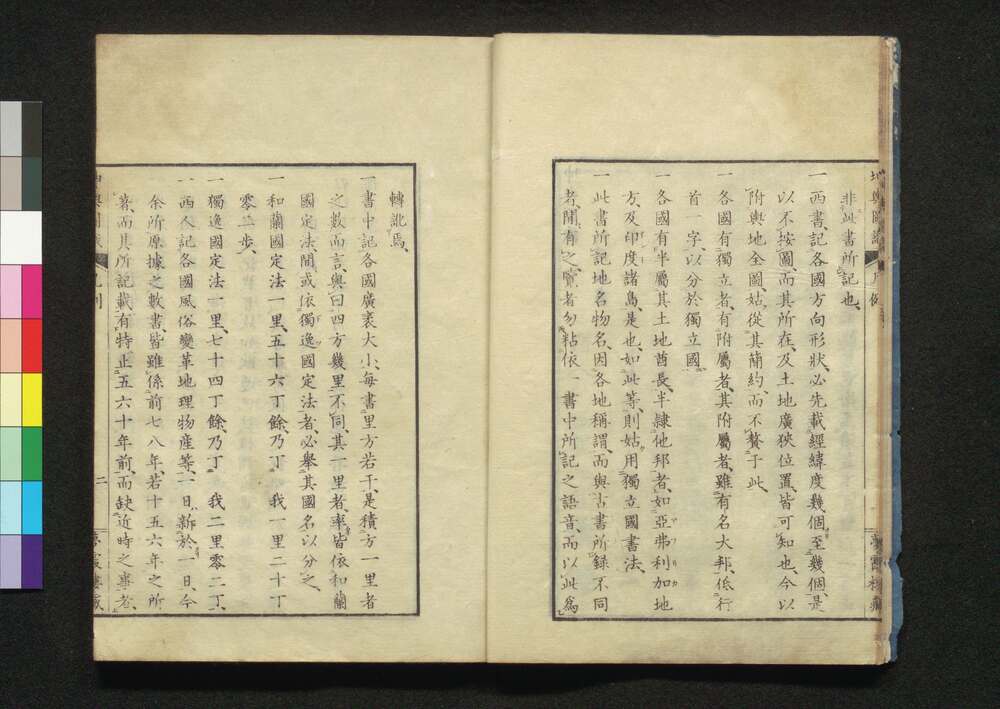 非此書所記也、
一西書記各國方向形狀必先載經緯度幾個至幾個、是
以不按圖、而其所在、及土地廣狹位置、皆可知也、今以
附輿地全圖、姑從其簡約、而不贅于此、
一各國有獨立者、有附屬者、其附屬者、雖有名大邦、低行
首一字、以分於獨立國
一各國有半屬其土地酋長、半隸他邦者、如亞弗利加地
方、及印度諸島是也、如此等、則姑用獨立國書法、
一此書所記地名物名、因各地稱謂、而與古書所錄不同
者、間有之、覽者勿粘依一書中所記之語音、而以此爲
轉訛焉、
一書中記各國廣袤大小、每書里方若干、是積方一里者
之數而言、與曰四方幾里不同、其一里者、率皆依和蘭
國定法、間或依獨逸國定法者、必舉其國名以分之、
一和蘭國定法一里、五十六丁餘、乃丁我一里二十丁
零二步、
一獨逸國定法一里、七十四丁餘、乃丁我二里零二丁、
一西人記各國風俗變革地理物產等、一日新於一日、今
余所原據之數書、皆雖係前七八年、若十五六年之所
著、而其所記載、有特止五六十年前、而缺近時之事者、
二